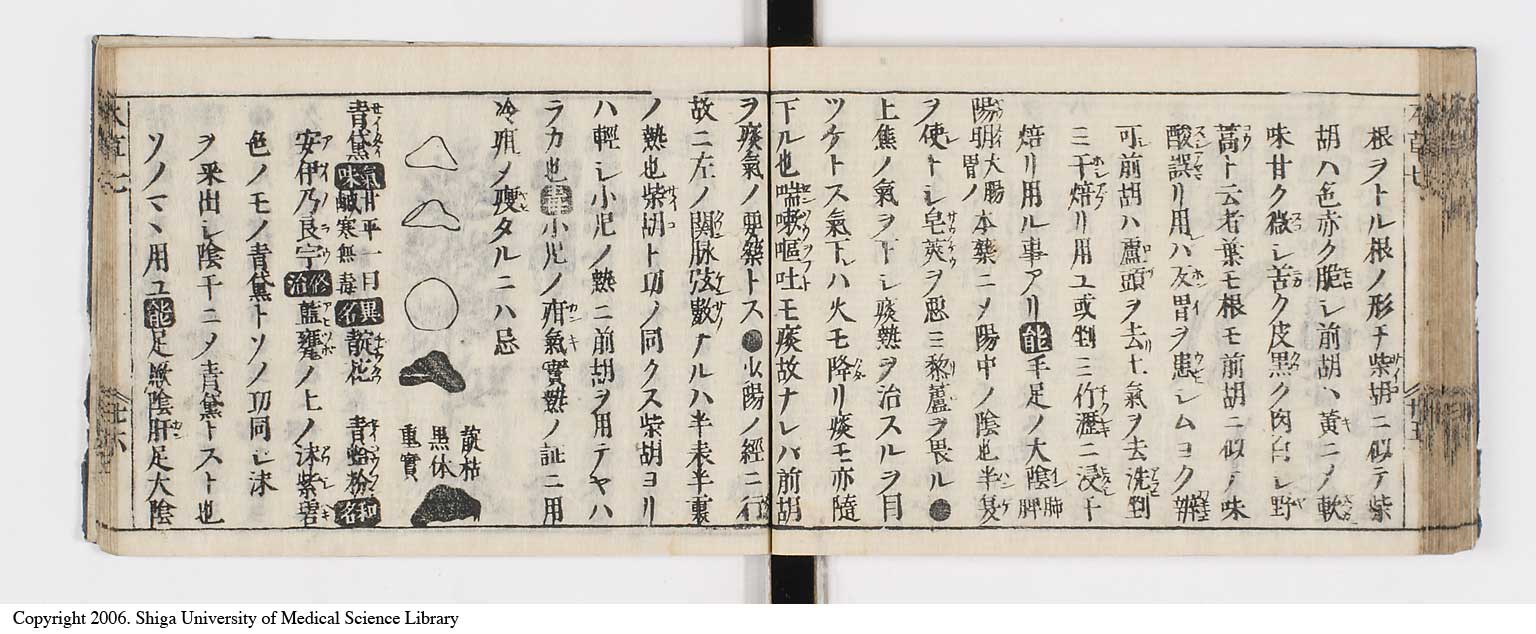 根ヲトル根ノ形チ柴胡ニ似テ柴
胡ハ色赤ク脆シ前胡ハ黄ニノ軟
味甘ク微シ苦ク皮黒ク肉白シ野
蒿ト云者葉モ根モ前胡ニ似テ味
酸誤リ用ハ反胃ヲ患シムヨク辨
可前胡ハ蘆頭ヲ去土氣ヲ去洗剉
ミ干焙リ用ユ或剉ミ竹瀝ニ浸干
焙リ用ル事アリ能手足ノ大陰肺脾
陽明大腸胃ノ本藥ニメ陽中ノ陰也半夏
ヲ使トシ皂莢ヲ悪ミ黎蘆ヲ畏ル●
上焦ノ氣ヲ下シ痰熱ヲ治スルヲ目
ツケトス氣下ハ火モ降リ痰モ亦隨
下ル也喘嗽嘔吐モ痰故ナレバ前胡
ヲ痰氣ノ要藥トス●少陽ノ經ニ行
故ニ左ノ関脉弦數ナルハ半表半裏
ノ熱也柴胡ト功ノ同クス柴胡ヨリ
ハ輕シ小児ノ熱ニ前胡ヲ用テヤハ
ラカ也毒小児ノ疳氣實熱ノ証ニ用
冷疳ノ瘦タルニハ忌
靛枯
黒休
重實
青黛氣味甘平一曰鹹寒無毒異名靛花 青蛤粉和名
安伊乃良宇修治藍甕ノ上ノ沫紫碧
色ノモノ青黛トソノ功同シ沫
ヲ釆出シ陰干ニノ青黛トスト也
ソノマヽ用ユ能足厥陰肝足大陰
十五
廿六
Copyright 2006. Shiga University of Medical Science Library